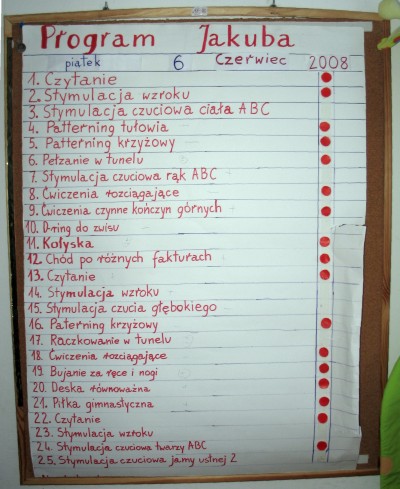 Program Jakuba
piątek 6 Czerwiec 2008
1. Czytanie
2. Stymulacja wzroku
3. Stymulacja czuciowa ciała ABC
4. Patterning tułowia
5. Patterning krzyżowy
6. Pełzanie w tunelu
7. Stymulacja czuciowa rąk ABC
8. Ćwiczenia rozciągające
9. Ćwiczenia czynne kończyn górnych
10. D-ring do zwisu
11. Kołyska
12. Chód po różnych fakturach
13. Czytanie
14. Stymulacja wzroku
15. Stymulacja czucia głębokiego
16. Paterning krzyżowy
17. Raczkowanie w tunelu
18. Ćwiczenia rozciągające
19. Bujanie za ręce i nogi
20. Deska równoważna
21. Piłka gimnastyczna
22. Czytanie
23. Stymulacja wzroku
24. Stymulacja czuciowa twarzy ABC
25. Stymulacja czuciowa jamy ustnej 2